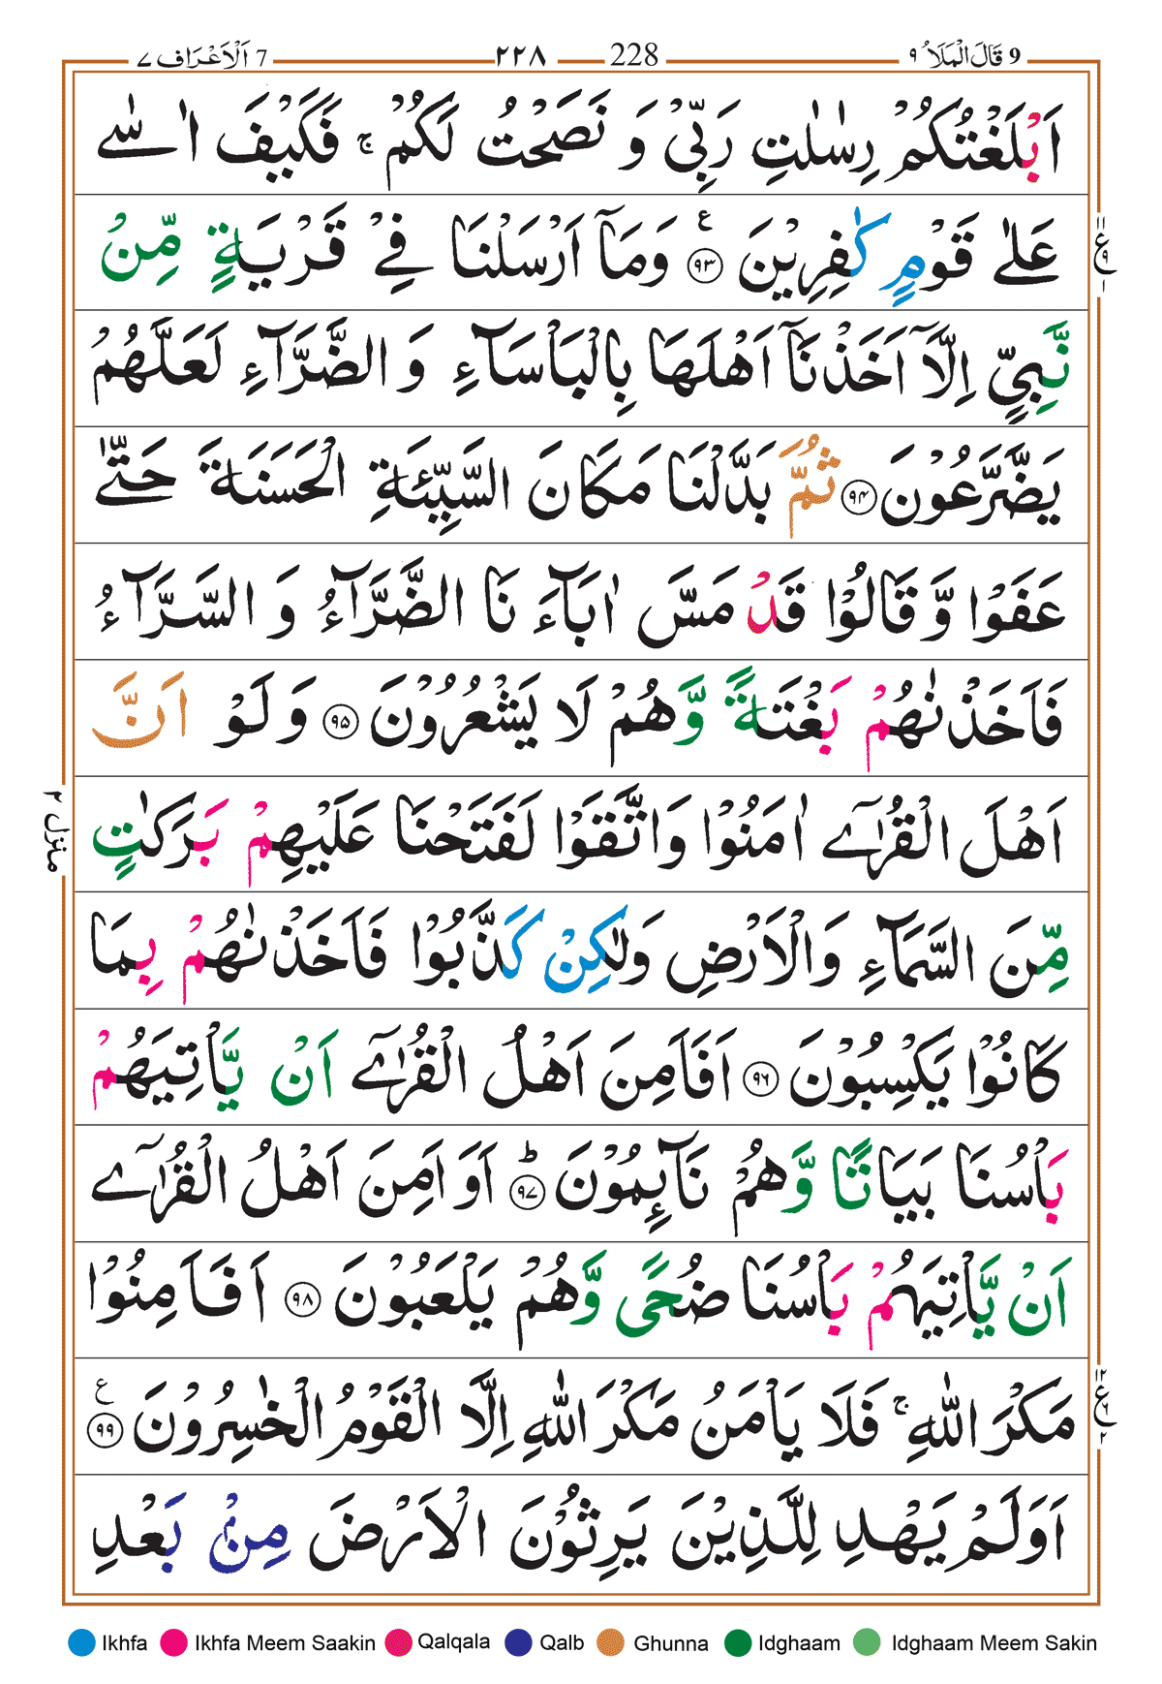 9 قَالَ الْمَلَاُ ٩ 228 ٢٢٨ 7 اَلْاَعْرَاف ٧
اَبْلَغْتُكُمْ رِسٰلٰتِ رَبِّیْ وَ نَصَحْتُ لَكُمْ ۚ فَكَیْفَ اٰسٰی
عَلٰی قَوْمٍ كٰفِرِیْنَ ﴿۹۳﴾ ع وَمَاۤ اَرْسَلْنَا فِیْ قَرْیَةٍ مِّنْ
نَّبِیٍّ اِلَّاۤ اَخَذْنَاۤ اَهْلَهَا بِالْبَاْسَآءِ وَ الضَّرَّآءِ لَعَلَّهُمْ
یَضَّرَّعُوْنَ ﴿۹۴﴾ ثُمَّ بَدَّلْنَا مَكَانَ السَّیِّئَةِ الْحَسَنَةَ حَتّٰی
عَفَوْا وَّ قَالُوْا قَدْ مَسَّ اٰبَآءَ نَا الضَّرَّآءُ وَ السَّرَّآءُ
فَاَخَذْنٰهُمْ بَغْتَةً وَّهُمْ لَا یَشْعُرُوْنَ ﴿۹۵﴾ وَ لَوْ اَنَّ
اَهْلَ الْقُرٰۤی اٰمَنُوْا وَاتَّقَوْا لَفَتَحْنَا عَلَیْهِمْ بَرَكٰتٍ
مِّنَ السَّمَآءِ وَالْاَرْضِ وَلٰكِنْ كَذَّبُوْا فَاَخَذْنٰهُمْ بِمَا
كَانُوْا یَكْسِبُوْنَ ﴿۹۶﴾ اَفَاَمِنَ اَهْلُ الْقُرٰۤی اَنْ یَّاْتِیَهُمْ
بَاْسُنَا بَیَاتًا وَّهُمْ نَآىِٕمُوْنَ ﴿۹۷﴾ ؕ اَوَ اَمِنَ اَهْلُ الْقُرٰۤی
اَنْ یَّاْتِیَهُمْ بَاْسُنَا ضُحًی وَّهُمْ یَلْعَبُوْنَ ﴿۹۸﴾ اَفَاَمِنُوْا
مَكْرَ اللّٰهِ ۚ فَلَا یَاْمَنُ مَكْرَ اللّٰهِ اِلَّا الْقَوْمُ الْخٰسِرُوْنَ ﴿۹۹﴾ ع
اَوَلَمْ یَهْدِ لِلَّذِیْنَ یَرِثُوْنَ الْاَرْضَ مِنْۢ بَعْدِ
۱۱ ع ۹ ۱
منزل ۲
۱۲ ع ۶ ۲
Ikhfa Ikhfa Meem Saakin Qalqala Qalb Ghunna Idghaam Idghaam Meem Sakin